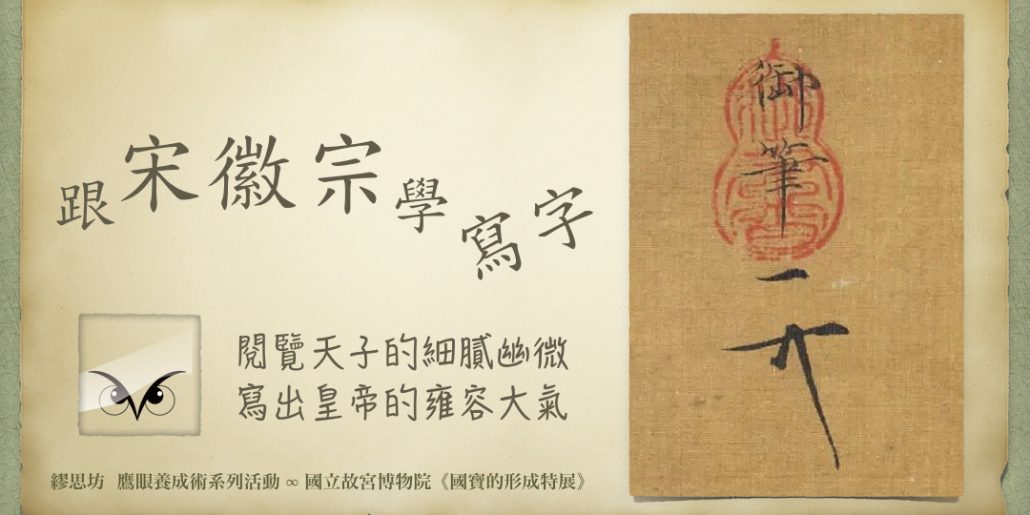 跟宋徽宗學寫字
閱覽天子的細膩幽微
寫出皇帝的雍容大氣
繆思坊 鷹眼養成術系列活動 ∞ 國立故宮博物院《國寶的形成特展》
御筆